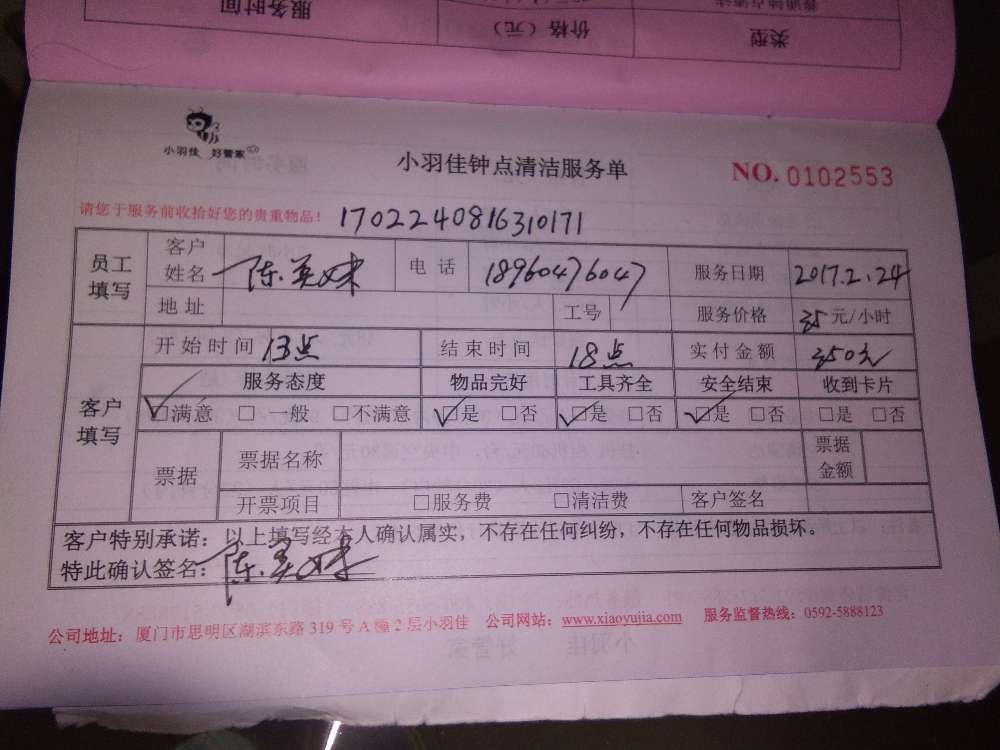 服务时间 价格（元） 类型
小羽佳 好管家
小羽佳钟点清洁服务单
NO. 0102553
请您于服务前收拾好您的贵重物品！ 1702240816310171
员工填写 客户姓名 陈英妹 电话 18960476047 服务日期 2017.2.24
地址 工号 服务价格 35元/小时
客户填写 开始时间 13点 结束时间 18点 实付金额 350元
服务态度 物品完好 工具齐全 安全结束 收到卡片
☑满意 □一般 □不满意 ☑是 □否 ☑是 □否 ☑是 □否 □是 □否
票据 票据名称 票据金额
开票项目 □服务费 □清洁费 客户签名
客户特别承诺：以上填写经本人确认属实，不存在任何纠纷，不存在任何物品损坏。
特此确认签名：陈英妹
公司地址：厦门市思明区湖滨东路319号A幢2层小羽佳 公司网站：www.xiaoyujia.com 服务监督热线：0592-5888123